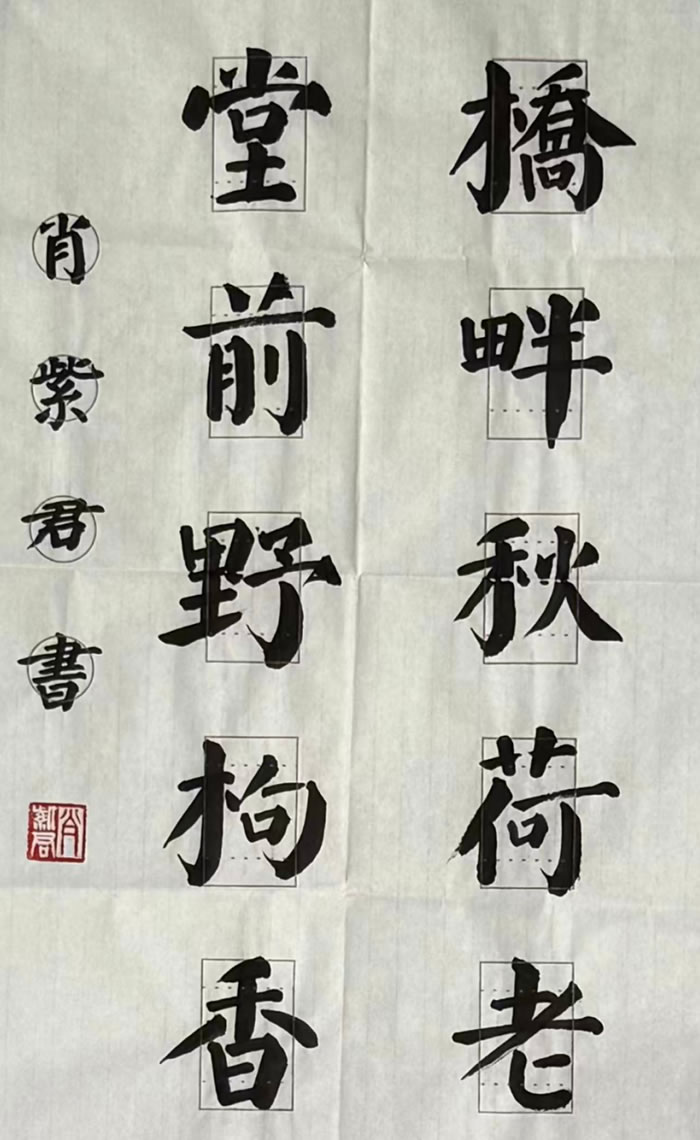 橋畔秋荷老
堂前野枸香
肖紫君書
肖紫君